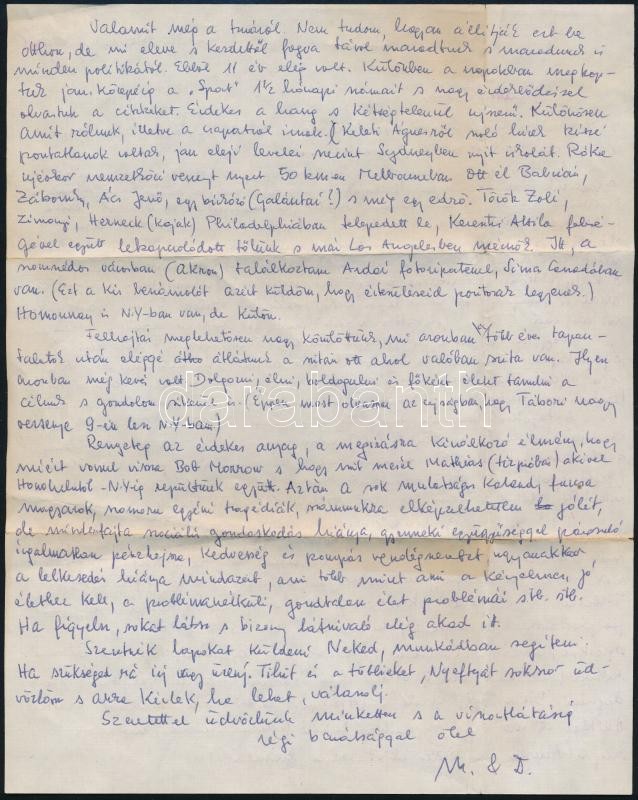 Valamit még a túráról. Nem tudom, hogyan állítják ezt be
otthon, de mi eleve s kezdettől fogva távol maradtunk s maradunk is
minden politikától. Ebből 11 év elég volt. Különben a napokban megkap-
tuk jan. közepéig a „Sport" 1½ hónapi számait s nagy érdeklődéssel
olvastuk a cikkeket. Érdekes a hang s kétségtelenül újszerű. Különösen
amit rólunk, illetve a csapatról írnak. (Keleti Ágnesről szóló hírek kissé
pontatlanok voltak, jan. eleji levelei szerint Sydneyben nyit iskolát. Róka
újévkor nemzetközi versenyt nyert 50 km-en Melbourneban. Ott él
Zábornszky, Ács Jenő, egy bírózó (Galántai?) s még egy edző. Török Zoli,
Zimonyi, Herneck (kajak) Philadelphiában telepedett le, Kerentsi Attila felesé-
gével együtt lekapcsolódott tőlünk s már Los Angelesben mérnök. Itt, a
szomszédos városban (Akron) találkoztam Ardai fotoriporterrel, Sima Canadában
van. (Ezt a kis beszámolót azért küldöm, hogy értesüléseid pontosak legyenek.)
Homonnay is N.Y-ban van, de külön.
Felhajtás meglehetősen nagy körülöttünk, mi azonban több éves tapasz-
talatok után eléggé átlátunk a szitán ott ahol valóban szita van. Ilyen
azonban még kevés volt. Dolgozni, élni, boldogulni és főként élünk tanulni a
célunk s gondolom sikerül is. (Éppen most olvasom az újságban hogy Tábori nagy
versenye 9-én lesz N.Y-ban!)
Rengeteg az érdekes anyag, a megírásra kínálkozó élmény, hogy
miért vonul vissza Bob Morrow s hogy mit mesél Mathias (tízpróbás) akivel
Honoluluból - N.Y-ig repültünk együtt. Aztán a sok mulatságos kaland, furcsa
magyarok, szomorú egyéni tragédiák, számunkra elképzelhetetlen jólét,
de mindenfajta szociális gondoskodás hiánya, gyermeki együgyűséggel párosuló
irgalmatlan pénzhajsza, kedvesség és pompás vendégszeretet ugyanakkor
a lelkesedés hiánya mindazért, ami több mint ami a kényelmes, jó
élethez kell, a problémanélküli, gondtalan élet problémái stb. stb.
Ha figyelsz, sokat látsz s bizony látnivaló elég akad itt.
Szeretnék lapokat küldeni Neked, munkádban segíteni.
Ha szükséged rá írj vagy üzenj. Tihit és a többieket, Nyeftyját sokszor üd-
vözlöm s arra kérlek, ha lehet, válaszolj.
Szeretettel üdvözlünk mindketten s a viszontlátásig
régi barátsággal ölel
M. & D.
darabanth